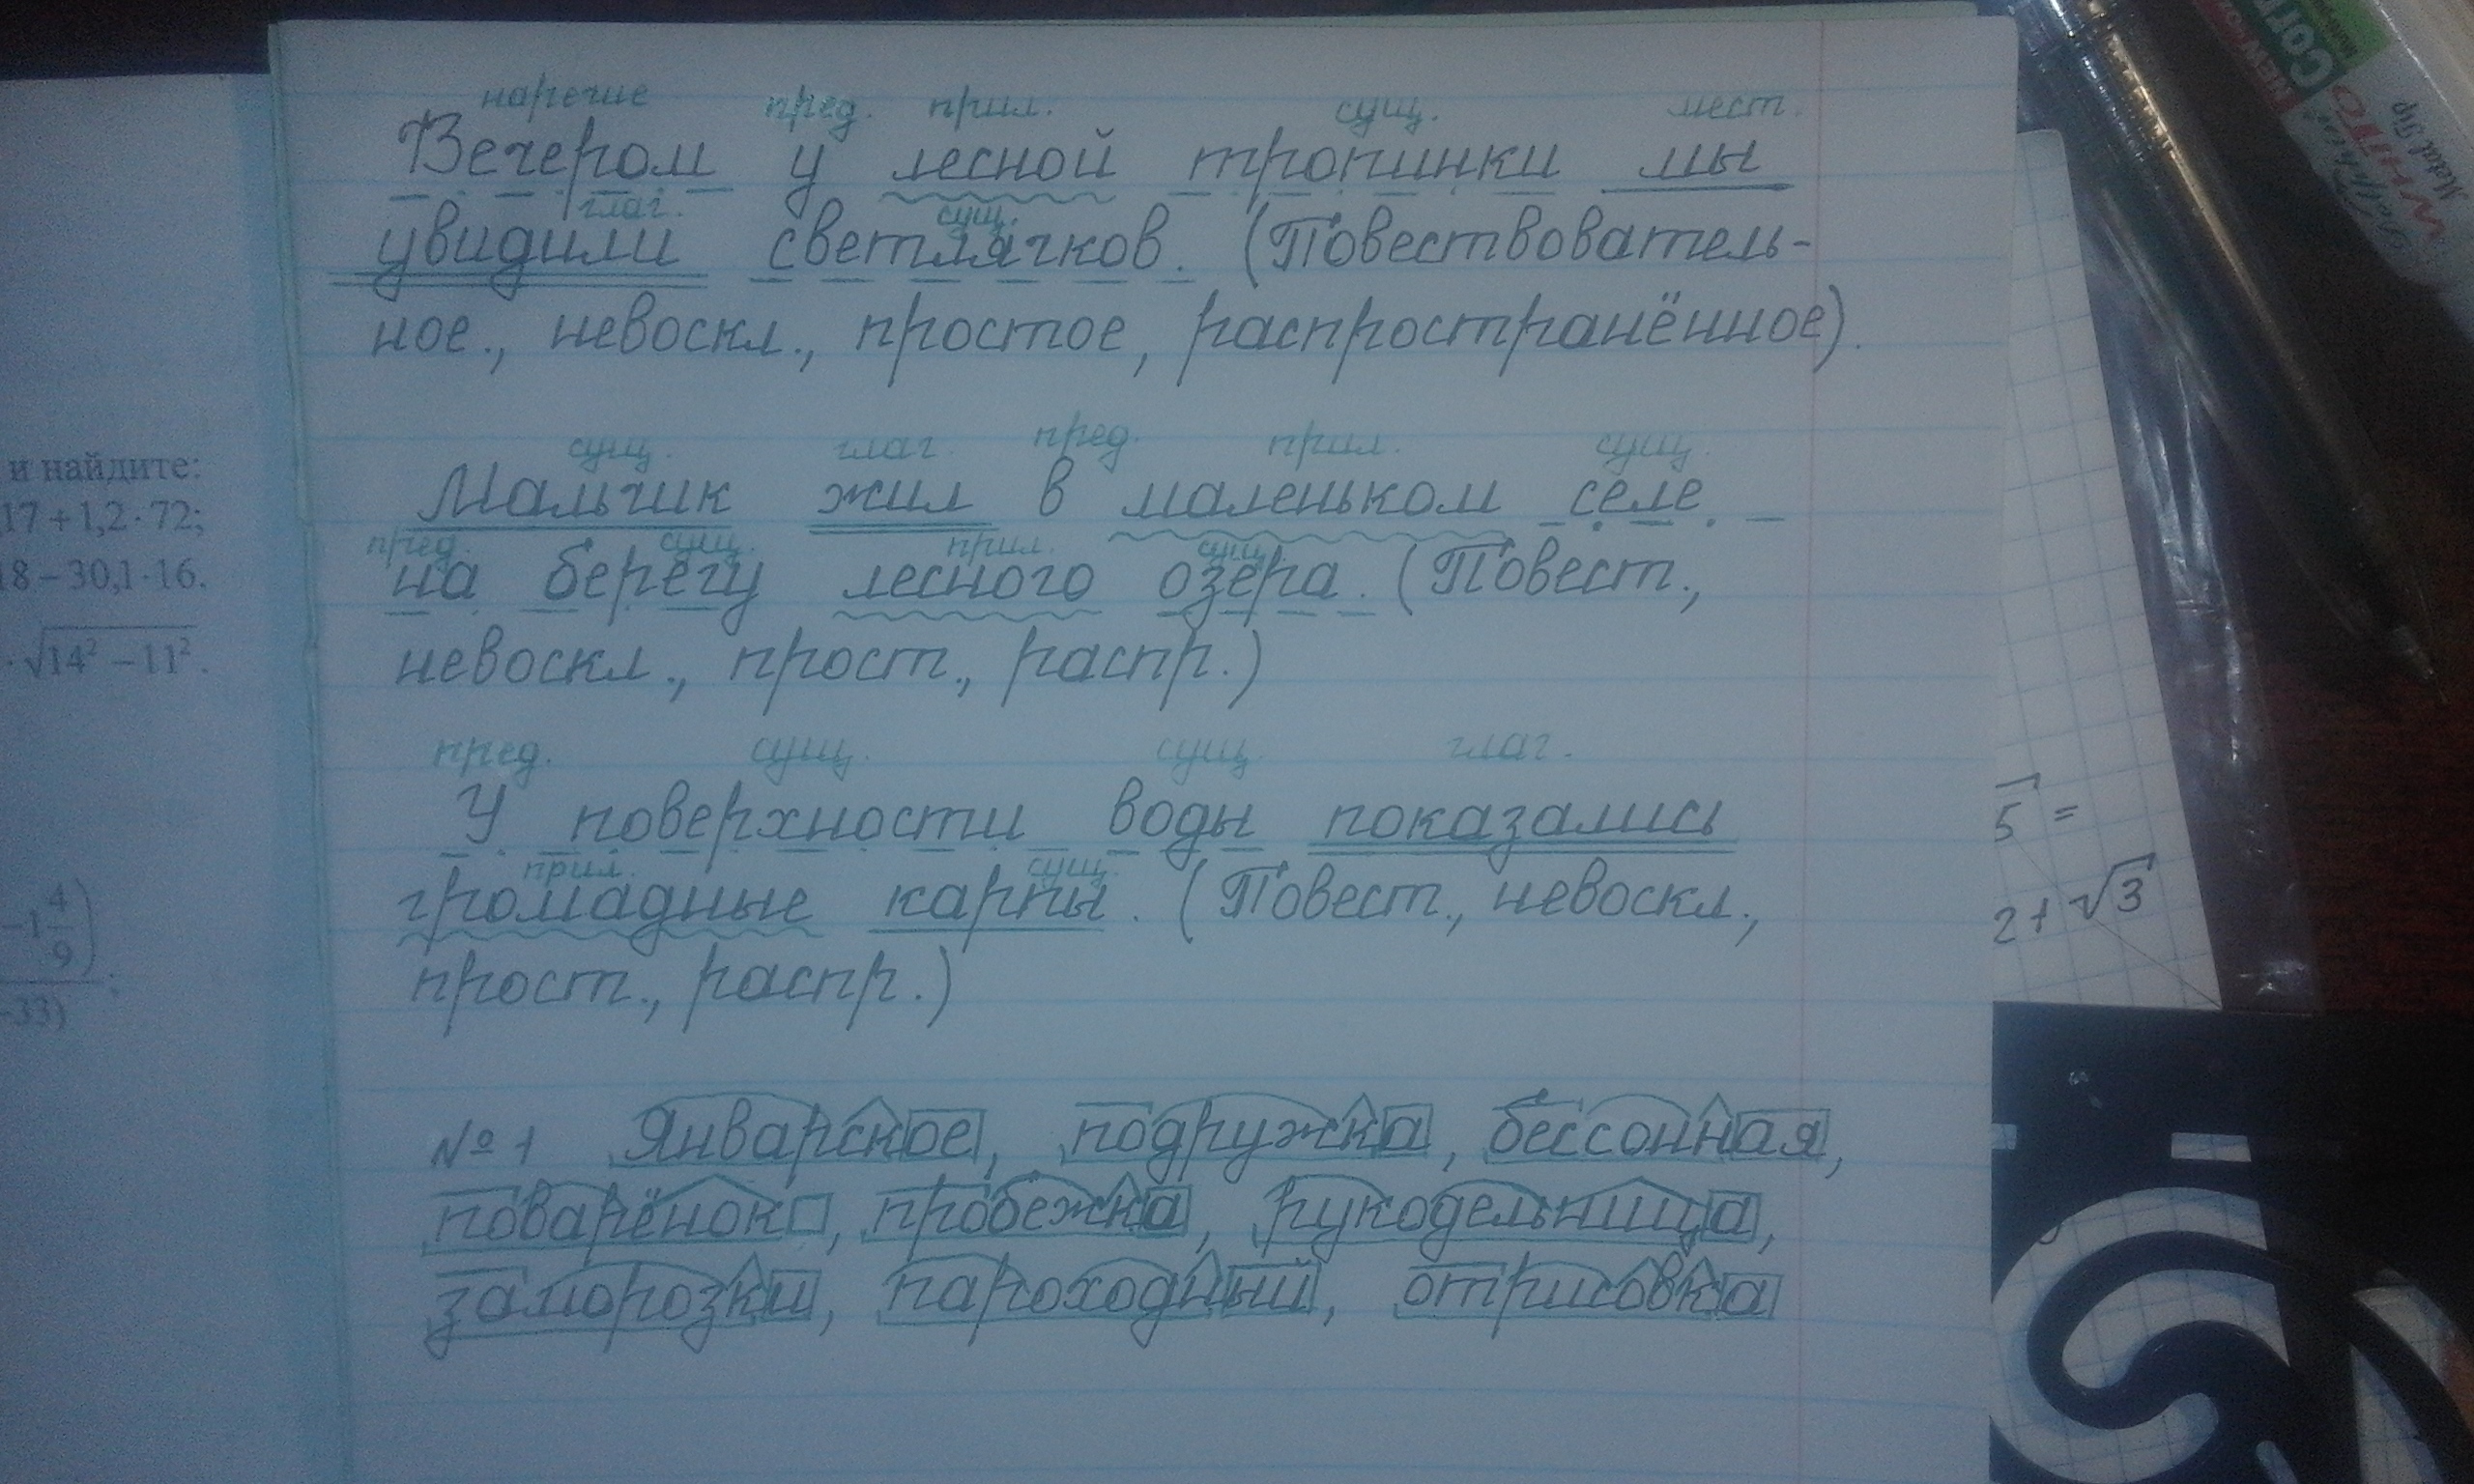 наречие пред. прил. сущ. мест.
Вечером у лесной тропинки мы
глаг. сущ.
увидили светлячков. (Повествователь-
ное., невоскл., простое, распространённое).
сущ. глаг. пред. прил. сущ.
Мальчик жил в маленьком селе
пред. сущ. прил. сущ.
на берегу лесного озера. (Повест.,
невоскл., прост., распр.)
пред. сущ. сущ. глаг.
У поверхности воды показались
прил. сущ.
громадные карпы. (Повест., невоскл.,
прост., распр.)
№ 1 Январское, подружка, бессонная,
поварёнок, пробежка, рукодельница,
заморозки, пароходный, отрисовка
и найдите:
17 + 1,2 · 72;
18 – 30,1 · 16.
· √14² – 11².
–1 4/9)
–33) ;
5 =
2 + √3